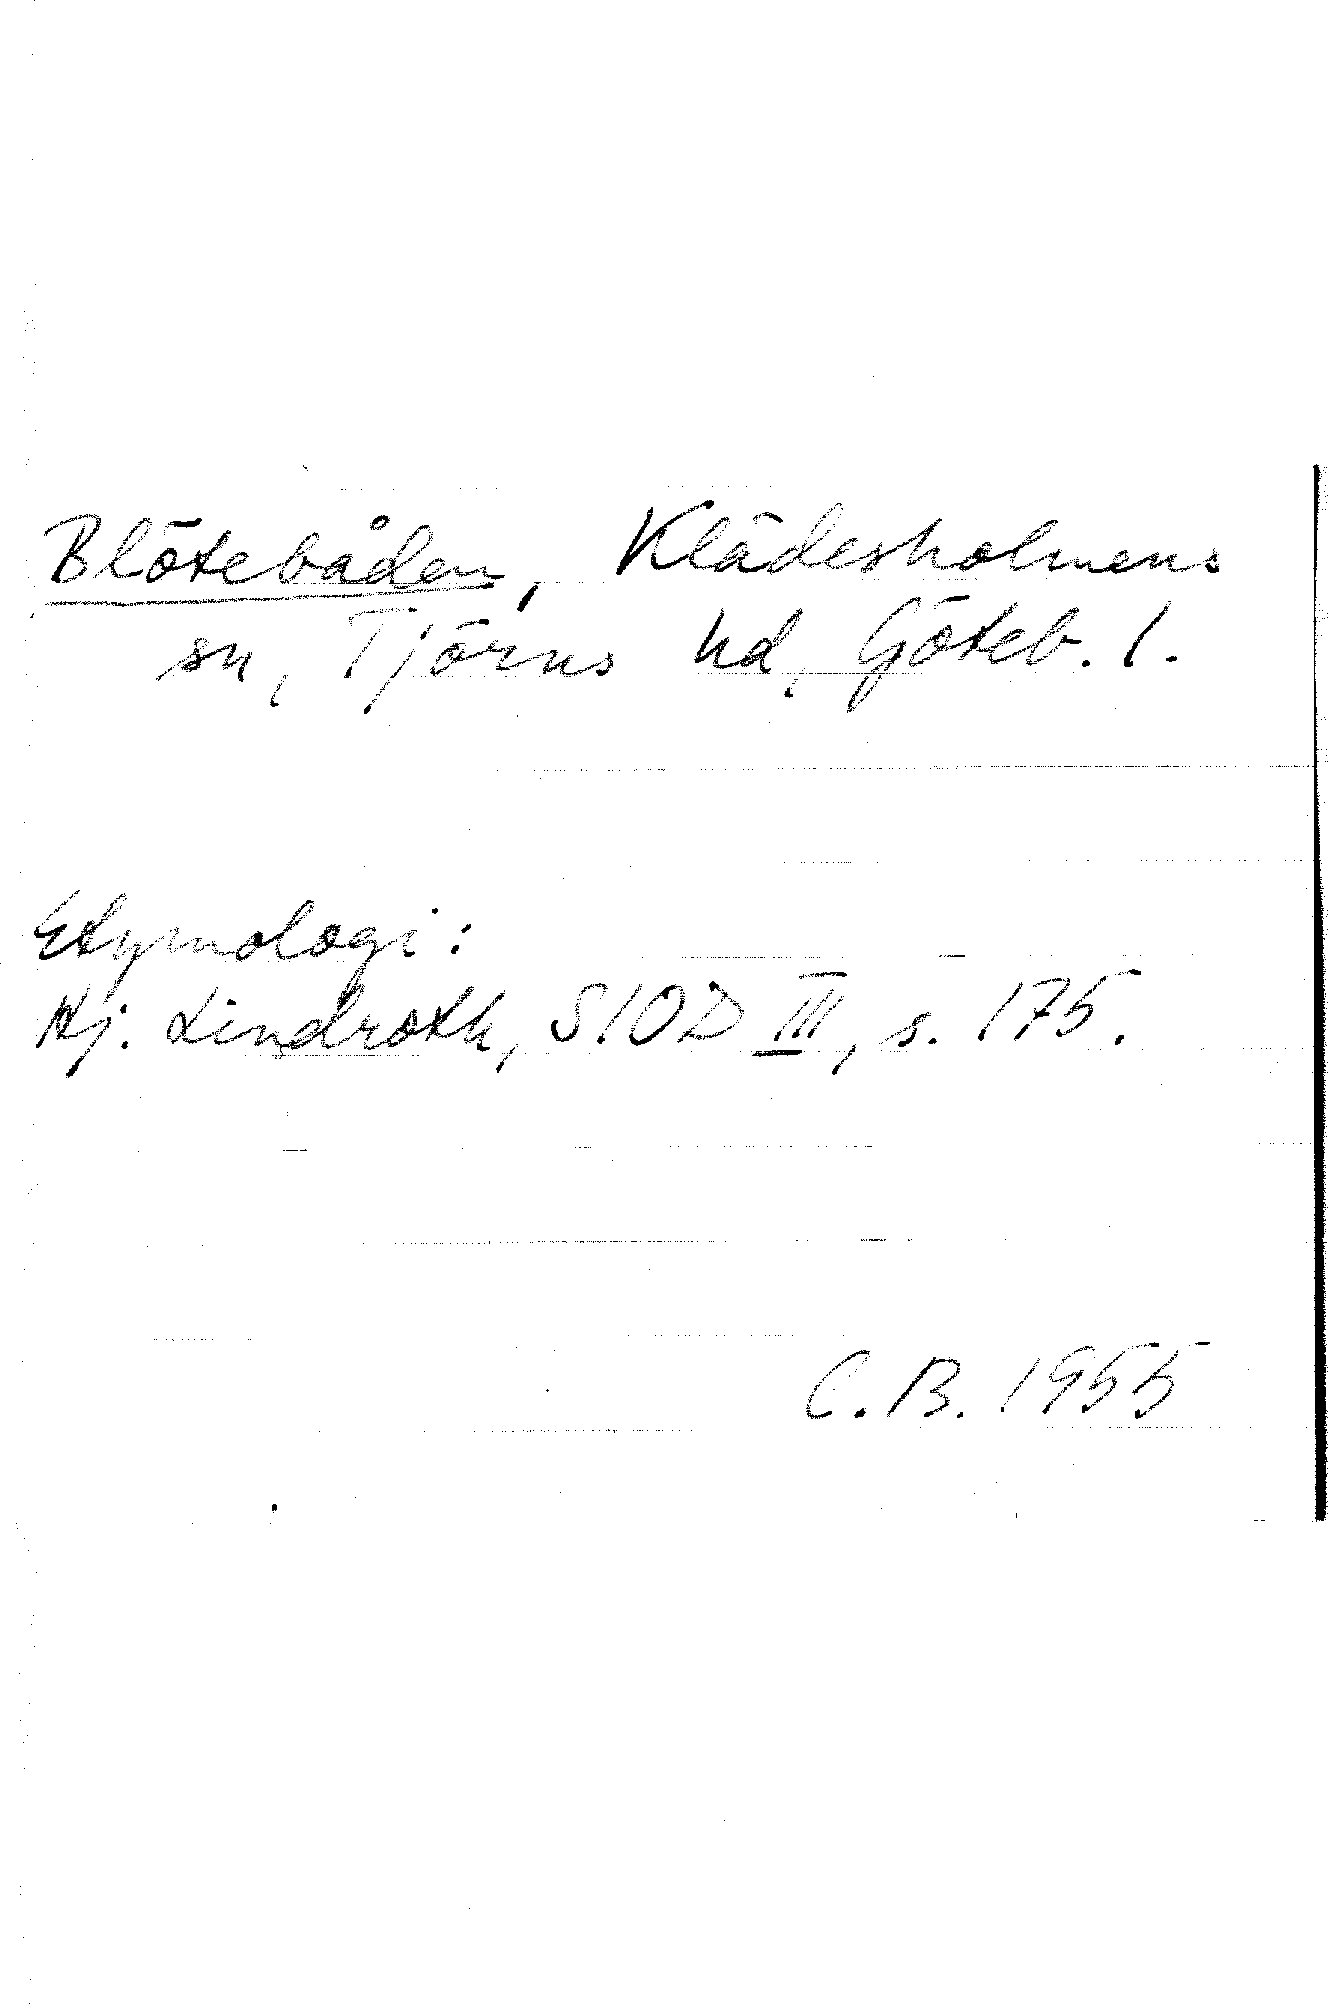 Blötebådan, Klädesholmens
sn, Tjörns hd, Göteb. l.
Etymologi:
Hj. Lindroth, SIOD III, s. 175.
C.B. 1955